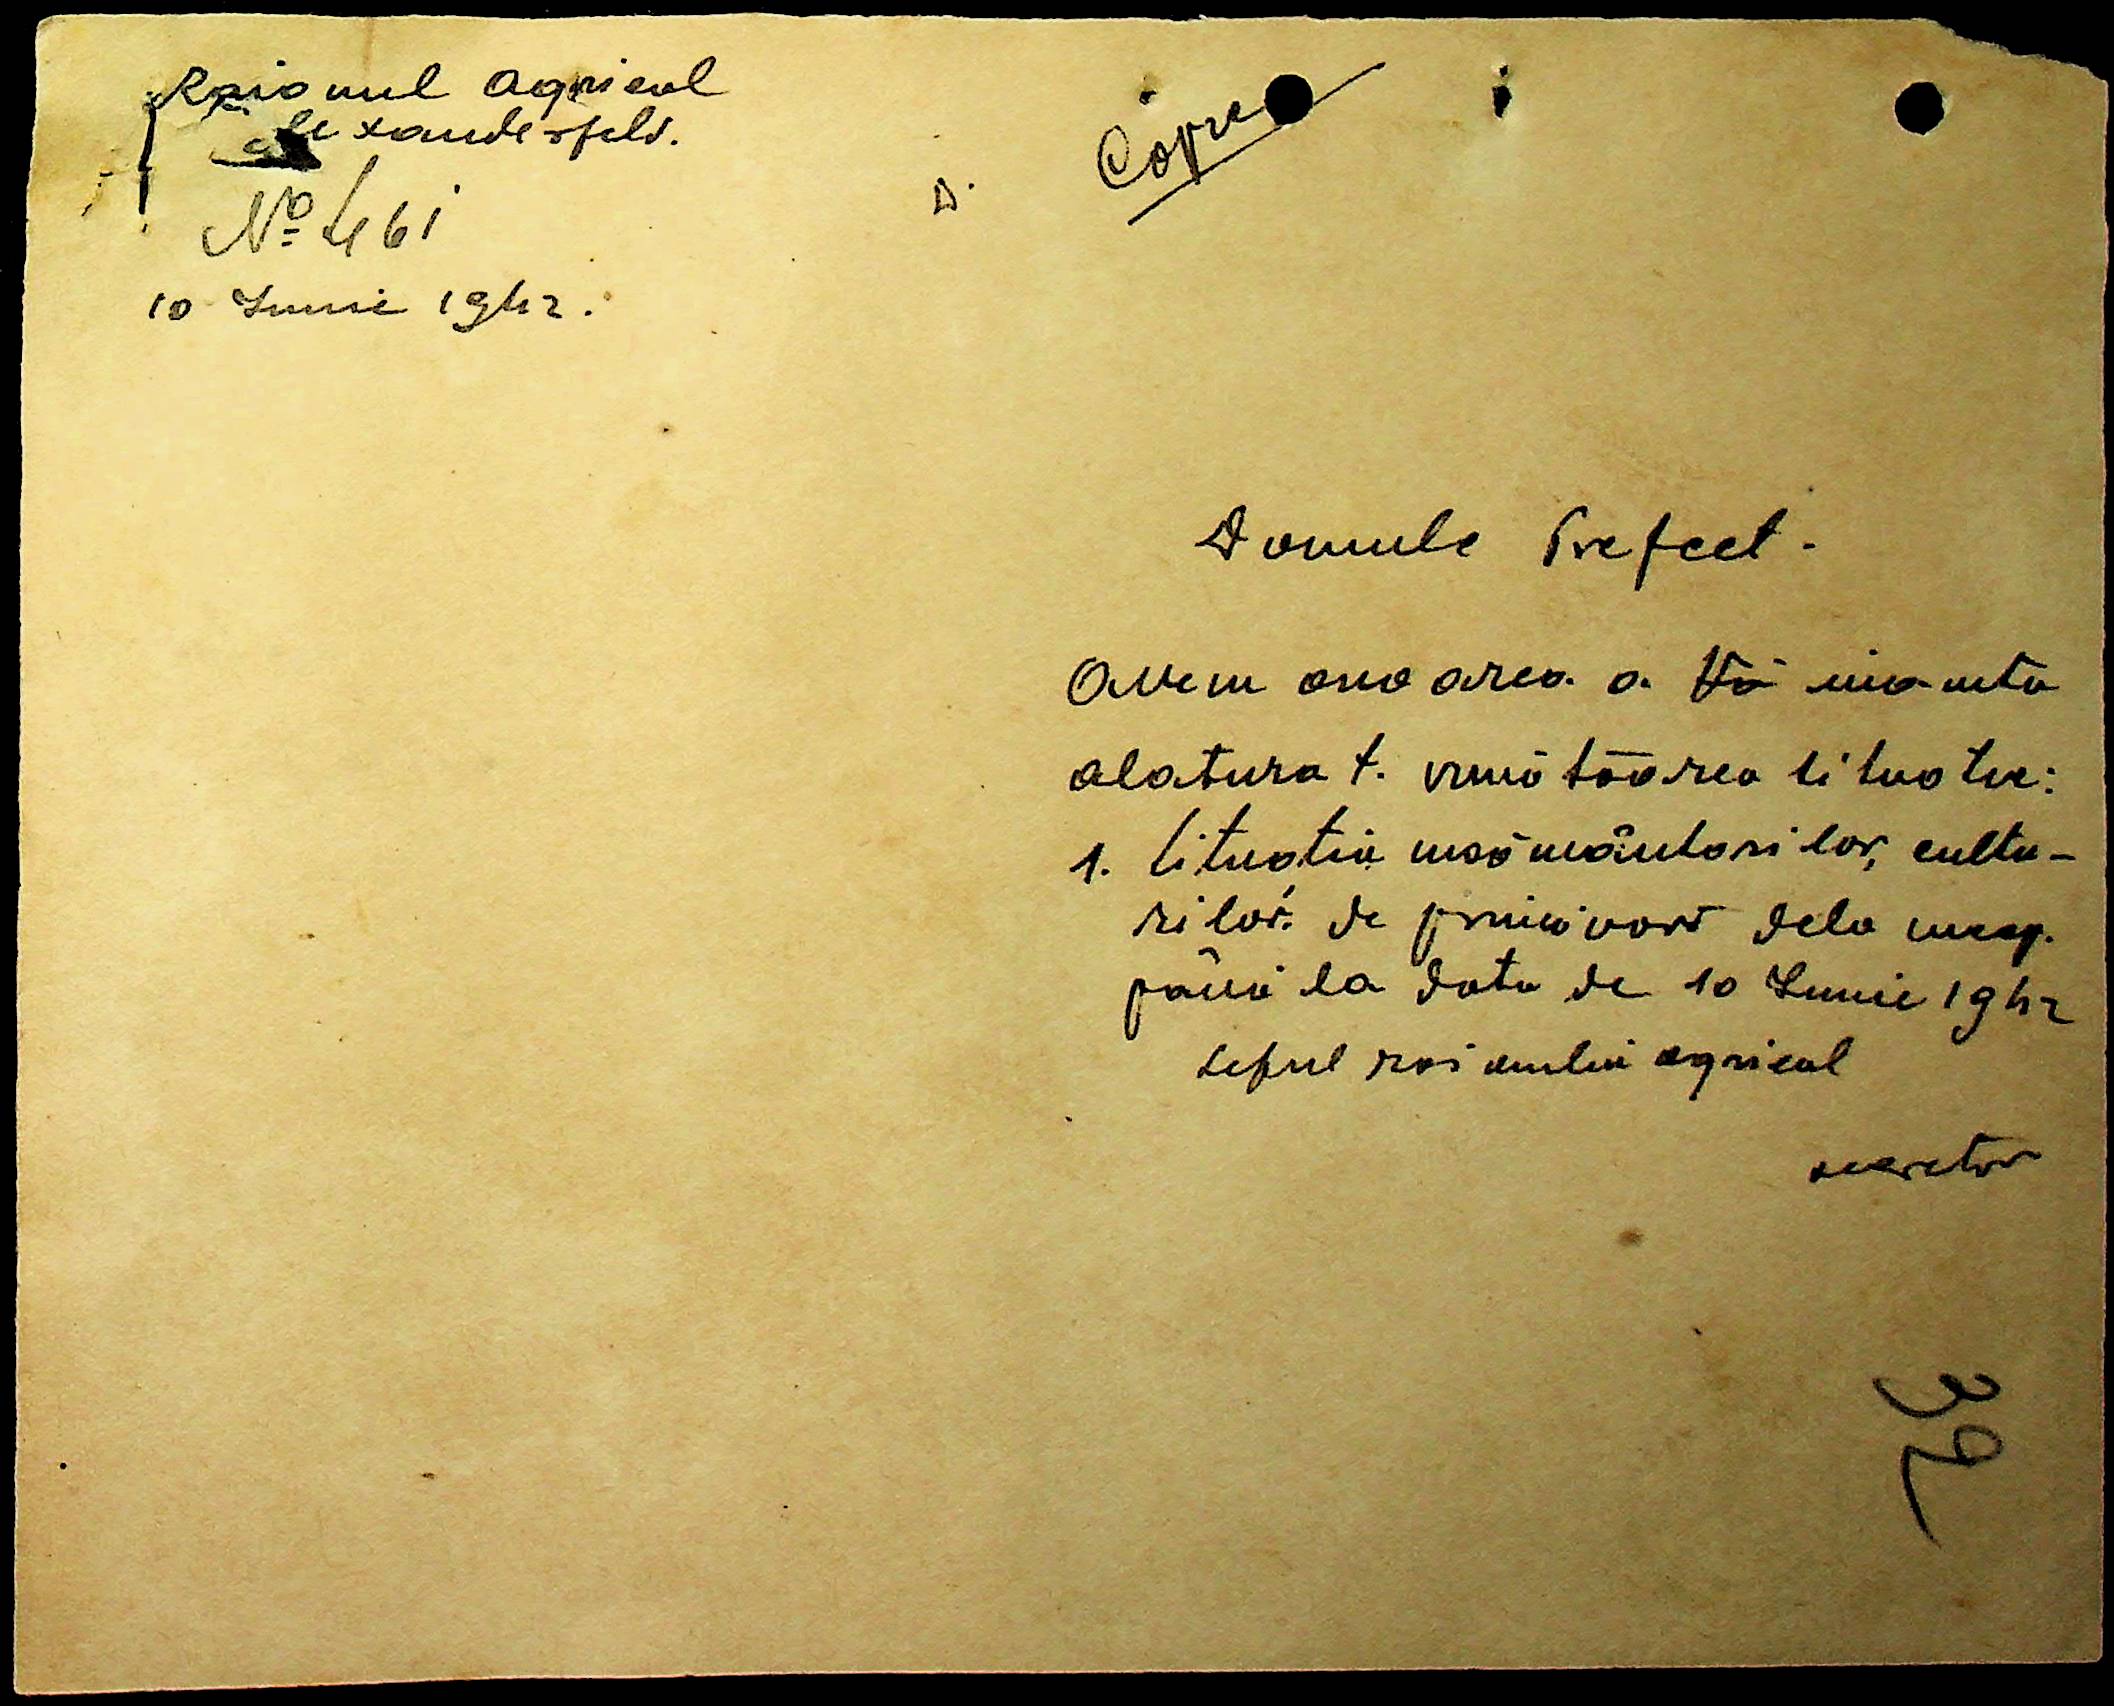 Raionul Agricol
Alexanderfeld.
No 461
10 Iunie 1942.
D.
Copie
Domnule Prefect.
Avem onoarea a Vă inainta
alaturat. urmátoarea situatie:
1. Situatia insămânțarilor, cultu-
rilor. de primăvară dela incep.
până la data de 10 Iunie 1942
Seful raionului agricol
secretar
32